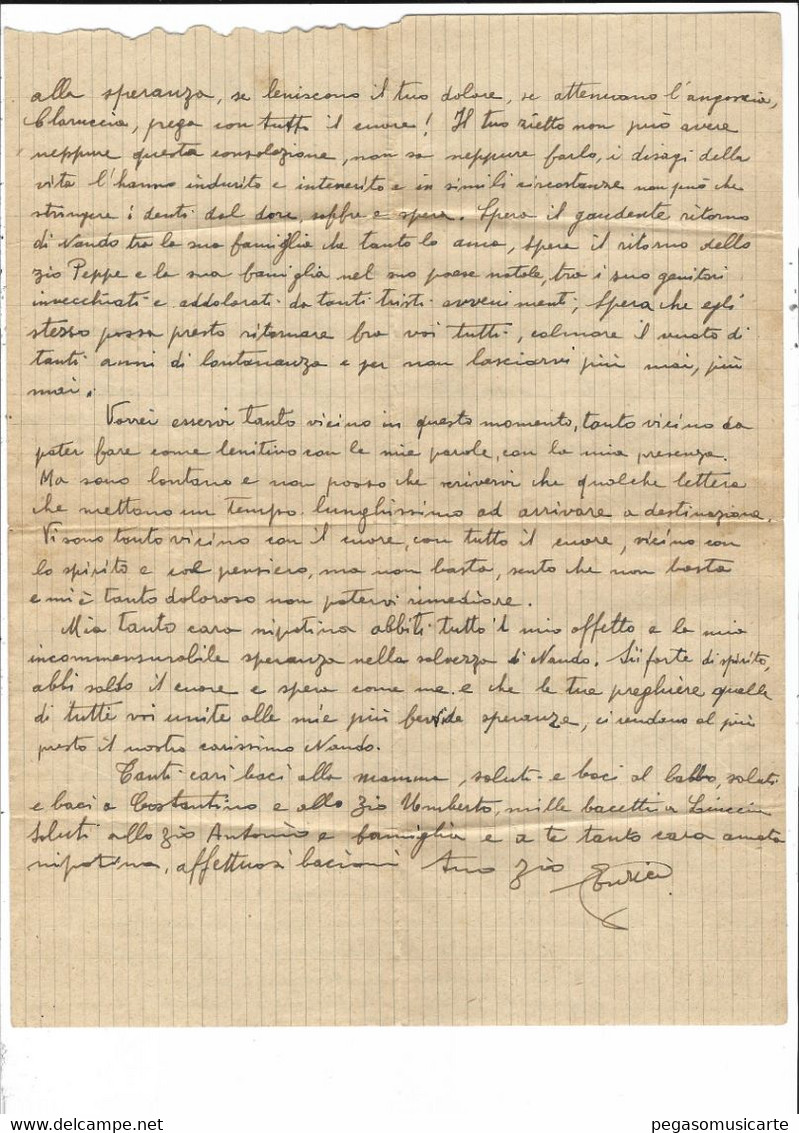 alla speranza, se leniscono il tuo dolore, se attenuano l'angoscia,
Claruccia, prega con tutto il cuore! Il tuo zietto non può avere
neppure questa consolazione, non sa neppure farlo, i disagi della
vita l'hanno indurito e intenerito e in simili circostanze non può che
stringere i denti dal dore, soffre e spera. Spera il gaudente ritorno
di Nando tra la sua famiglia che tanto lo ama, spera il ritorno dello
zio Peppe e la sua famiglia nel suo paese natale, tra i suoi genitori
invecchiati e addolorati da tanti tristi avvenimenti; spera che egli
stesso possa presto ritornare fra voi tutti, colmare il vuoto di
tanti anni di lontananza e per non lasciarvi più mai, più
mai.
Vorrei esservi tanto vicino in questo momento, tanto vicino da
poter fare come lenitivo con le mie parole, con la mia presenza.
Ma sono lontano e non posso che scrivervi che qualche lettera
che mettono un tempo lunghissimo ad arrivare a destinazione.
Vi sono tanto vicino con il cuore, con tutto il cuore, vicino con
lo spirito e col pensiero, ma non basta, sento che non basta
e mi è tanto doloroso non potervi rimediare.
Mia tanto cara nipotina abbiti tutto il mio affetto e la mia
incommensurabile speranza nella salvezza di Nando. Sii forte di spirito,
abbi saldo il cuore e spera come me e che le tue preghiere quelle
di tutti voi unite alle mie più fervide speranze, ci rendano al più
presto il nostro carissimo Nando.
Tanti cari baci alla mamma, saluti e baci al babbo, saluti
e baci a Costantino e allo zio Umberto, mille bacetti a
Saluti allo zio Antonio e famiglia e a te tanto cara amata
nipotina, affettuosi bacioni Tuo zio Enrico
pegasomusicarte